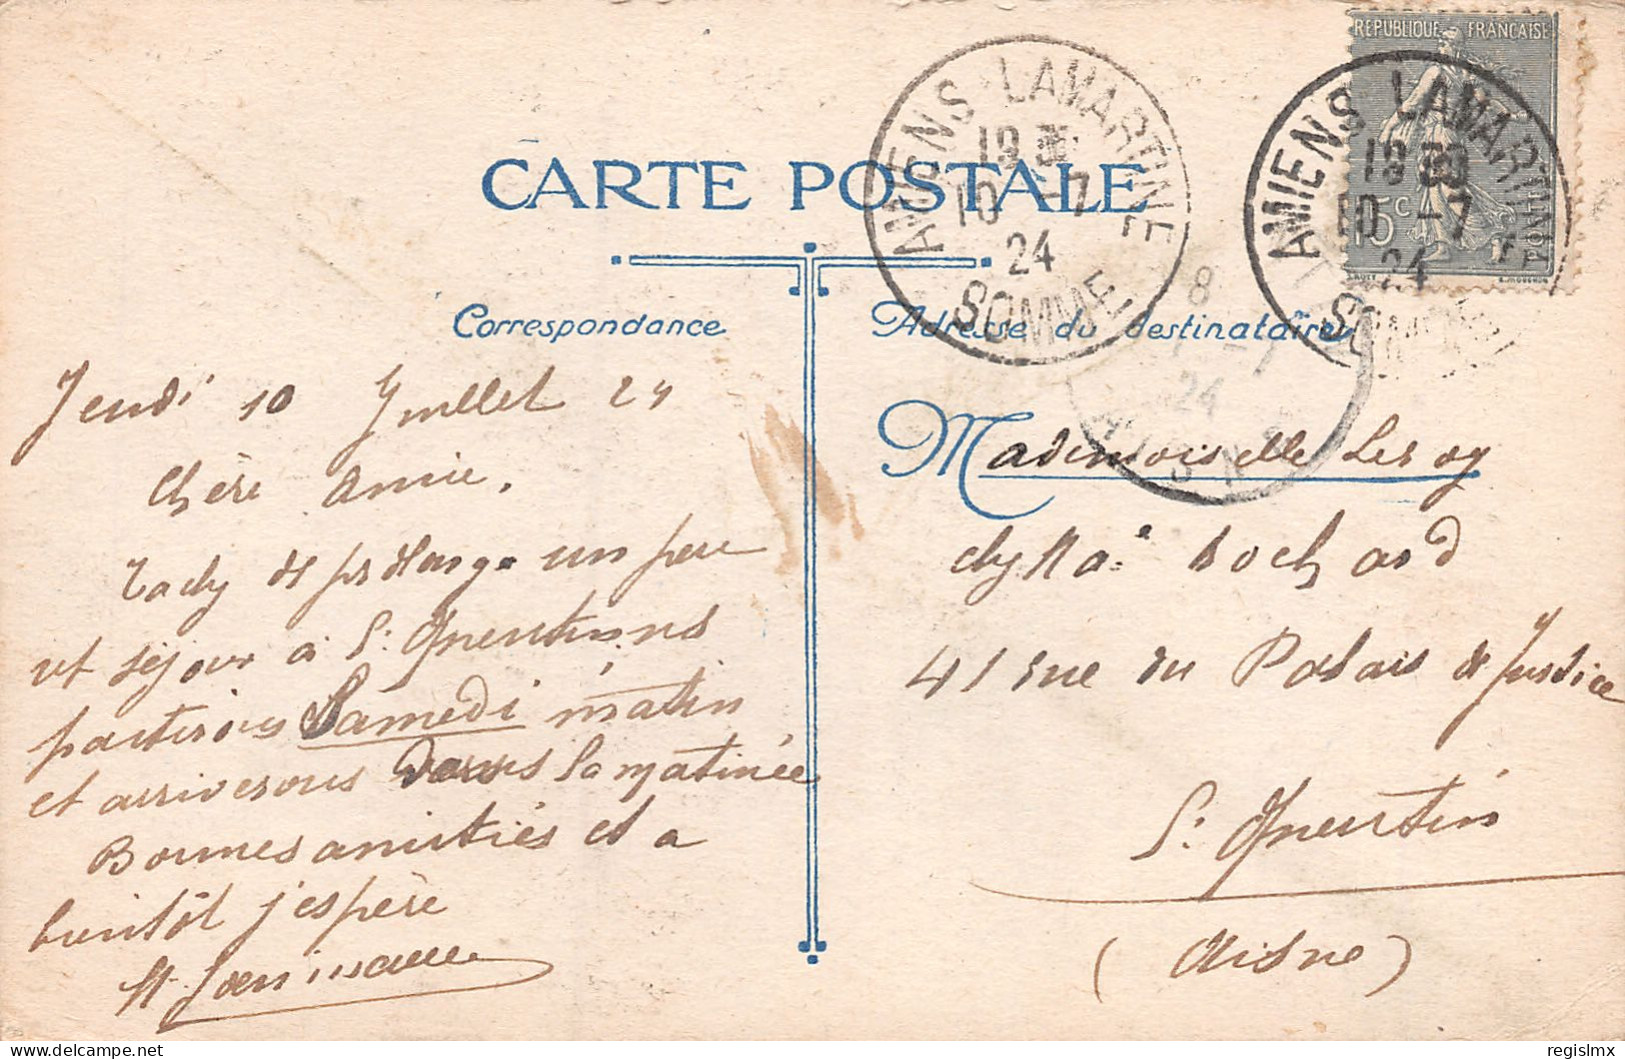 RÉPUBLIQUE FRANÇAISE
15c
AMIENS LAMARTINE
19 30
10 -7
24
SOMME
AMIENS LAMARTINE
19 30
10 -7
24
SOMME
8
-7
24
AISNE
CARTE POSTALE
Correspondance
Adresse du destinataire
Jeudi 10 Juillet 24
Chère Amie,
prolonge un peu
et séjour à St Quentin. ns
partirons Samedi matin
et arriverons dans la matinée
Bonnes amitiés et a
bientôt j'espère
Mademoiselle Leroy
chez Rochard
41 rue du Palais de Justice
St Quentin
(Aisne)
regislmx